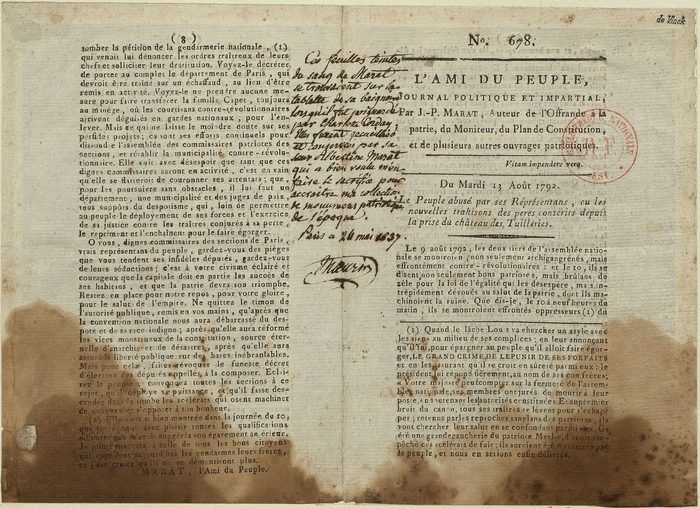 de Vinck
( 8 )
tomber la pétition de la gendarmerie nationale, (1)
qui venoit lui dénoncer les ordres traîtreux de leurs
chefs et solliciter leur destitution. Voyez-le décréter,
de porter au complet le département de Paris, qui
devroit être traîné sur un échaffaud, au lieu d'être
remis en activité. Voyez-le ne prendre aucune me-
sure pour faire transférer la famille Capet, toujours
au minège, où les courtisans contre-révolutionnaires
arrivent déguisés en gardes nationaux, pour l'en-
lever. Mais ce qui ne laisse le moindre doute sur ses
perfides projets; ce sont ses efforts continuels pour
dissoudre l'assemblée des commissaires patriotes des
sections, et rétablir la municipalité contre-révolu-
tionnaire. Elle voit avec désespoir que tant que ces
dignes commissaires seront en activité, c'est en vain
qu'elle se flatteroit de couronner ses attentats; que
pour les poursuivre sans obstacles, il lui faut un
département, une municipalité et des juges de paix,
tous suppôts du despotisme, qui, loin de permettre
au peuple le déployement de ses forces et l'exercice
de sa justice contre les traîtres conjurés à sa perte,
le répriment et l'enchaînent pour le faire égorger.
O vous, dignes commissaires des sections de Paris,
vrais représentans du peuple, gardez-vous des pièges
que vous tendent ses infidèles députés, gardez-vous
de leurs séductions; c'est à votre civisme éclairé et
courageux que la capitale doit en partie les succès de
ses habitans, et que la patrie devra son triomphe.
Restez en place pour notre repos, pour votre gloire,
pour le salut de l'empire. Ne quittez le timon de
l'autorité publique, remis en vos mains, qu'après que
la convention nationale nous aura débarrassé du des-
pote et de sa race indigne; après qu'elle aura réformé
les vices monstrueux de la constitution, source éter-
nelle d'anarchie et de désastres; après qu'elle aura
assuré la liberté publique sur des bases inébranlables.
Mais pour cela, faites révoquer le funeste décret
d'élection des députés appellés à la composer. Eclai-
rez le peuple, convoquez toutes les sections à ce
sujet, qu'il déploye sa puissance, et qu'il fasse des-
cendre dans la tombe les scélérats qui osent machiner
de nouveau et s'opposer à son bonheur.
(1) Elle s'est si bien montrée dans la journée du 10,
que
avec plaisir toutes les qualifications
également par écrire.
à celle de tous les bons citoyens
qui appellent aujourd'hui les gendarmes leurs frères,
et j'ose croire qu'ils ne se démentiront plus.
MARAT, l'Ami du Peuple.
Ces feuilles teintes
du sang de Marat
se trouvoient sur la
tablette de sa baignoire
lorsqu'il fut poignardé
par Charlotte Corday;
Elles furent recueillies
et conservées par sa
sœur Albertine Marat
qui a bien voulu m'en
faire le sacrifice pour
accroitre ma collection
de monumens patriotiques
de l'époque.
Paris ce 26 mai 1837.
N°. 678.
L'AMI DU PEUPLE,
JOURNAL POLITIQUE ET IMPARTIAL,
Par J.-P. MARAT, Auteur de l'Offrande à la
patrie, du Moniteur, du Plan de Constitution,
et de plusieurs autres ouvrages patriotiques.
Vitam impendere vero.
Du Mardi 13 Août 1792.
Le Peuple abusé par ses Réprésentans, ou les
nouvelles trahisons des peres conscrits depuis
la prise du château des Tuilleries.
Le 9 août 1792, les deux tiers de l'assemblée natio-
nale se montroient, non seulement archigangrénés, mais
effrontément contre-révolutionnaires: et le 10, ils se
disent, non seulement bons patriotes, mais brûlans de
zèle pour la loi de l'égalité qui les désespère, mais in-
trépidement dévoués au salut de la patrie, dont ils ma-
chinoient la ruine. Que dis-je, le 10 à neuf heures du
matin, ils se montroient effrontés oppresseurs (1) du
(1) Quand le lâche Louis va chercher un asyle avec
les siens au milieu de ses complices; en leur annonçant
qu'il vient pour épargner au peuple qu'il alloit faire égor-
ger, LE GRAND CRIME DE LE PUNIR DE SES FORFAITS
et en leur disant qu'il se croit en sûreté parmi eux: le
président lui répond fièrement, au nom de ses confrères;
Votre majesté peut compter sur la fermeté de l'assem-
blée nationale, ses membres ont juré de mourir à leur
poste, en soutenant les autorités constituées. Et au premier
bruit du canon, tous ces traîtres se lèvent pour s'échap-
per; retenus par les reproches sanglans des patriotes, ils
vont chercher leur salut en se confondant parmi eux. Ça
été une grande gaucherie du patriote Merlin, d'avoir em-
pêché ces scélérats de fuir; ils auroient été massacrés par
le peuple, et nous en serions enfin délivrés.